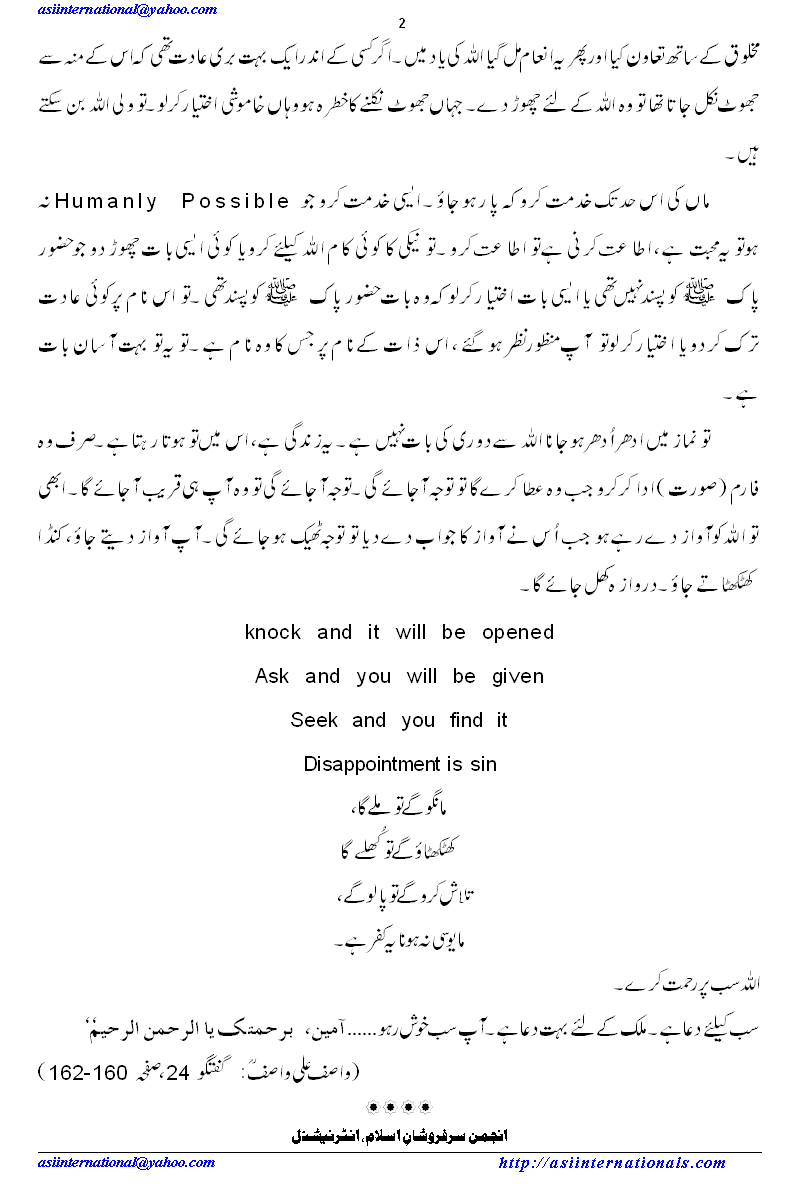 asiinternational@yahoo.com
2
مخلوق کے ساتھ تعاون کیا اور پھر یہ انعام مل گیا اللہ کی یاد میں ۔ اگر کسی کے اندر ایک بہت بری عادت تھی کہ اس کے منہ سے
جھوٹ نکل جاتا تھا تو وہ اللہ کے لئے چھوڑ دے۔ جہاں جھوٹ نکلنے کا خطرہ ہو وہاں خاموشی اختیار کرلو۔ تو ولی اللہ بن سکتے
ہیں ۔
ماں کی اس حد تک خدمت کرو کہ پار ہو جاؤ ۔ ایسی خدمت کرو جو Humanly Possible نہ
ہو تو یہ محبت ہے، اطاعت کرنی ہے تو اطاعت کرو ۔ تو نیکی کا کوئی کام اللہ کیلئے کرو یا کوئی ایسی بات چھوڑ دو جو حضور
پاک ﷺ کو پسند نہیں تھی یا ایسی بات اختیار کرلو کہ وہ بات حضور پاک ﷺ کو پسند تھی ۔ تو اس نام پر کوئی عادت
ترک کر دو یا اختیار کرلو تو آپ منظور نظر ہو گئے ، اس ذات کے نام پر جس کا وہ نام ہے ۔ تو یہ تو بہت آسان بات
ہے ۔
تو نماز میں ادھر اُدھر ہو جانا اللہ سے دوری کی بات نہیں ہے ۔ یہ زندگی ہے، اس میں تو ہوتا رہتا ہے ۔ صرف وہ
فارم (صورت) ادا کرکرو جب وہ عطا کرے گا تو توجہ آ جائے گی ۔ توجہ آ جائے گی تو وہ آپ ہی قریب آ جائے گا ۔ ابھی
تو اللہ کو آواز دے رہے ہو جب اُس نے آواز کا جواب دے دیا تو توجہ ٹھیک ہو جائے گی ۔ آپ آواز دیتے جاؤ، کنڈا
کھٹکھٹاتے جاؤ ۔ دروازہ کھل جائے گا ۔
knock and it will be opened
Ask and you will be given
Seek and you find it
Disappointment is sin
مانگو گے تو ملے گا،
کھٹکھٹاؤ گے تو کُھلے گا
تلاش کرو گے تو پالو گے،
مایوسی نہ ہونا یہ کفر ہے ۔
اللہ سب پر رحمت کرے ۔
سب کیلئے دعا ہے ۔ ملک کے لئے بہت دعا ہے ۔ آپ سب خوش رہو ...... آمین، برحمتک یا الرحمن الرحیم‘‘
(واصف علی واصفؒ : گفتگو 24، صفحہ 160-162)
انجمن سرفروشانِ اسلام، انٹرنیشنل
asiinternational@yahoo.com
http://asiinternationals.com